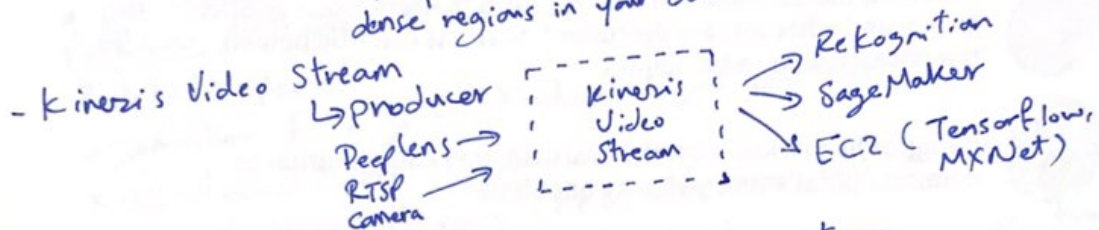 dense regions in your
- Kinezis Video Stream
↳ producer
Deeplens →
RTSP
camera →
Kinezis
Video
Stream
Rekognition
SageMaker
EC2 (Tensorflow,
MXNet)